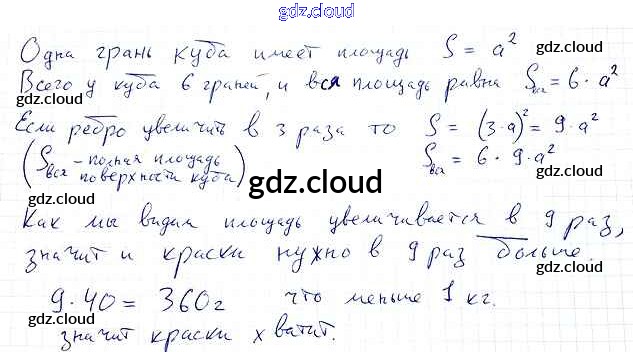 gdz.cloud
Одна грань куба имеет площадь S = a²
gdz.cloud
Всего у куба 6 граней, и вся площадь равна Sвся = 6 · a²
gdz.cloud
gdz.cloud
Если ребро увеличить в 3 раза то S = (3·a)² = 9·a²
(Sвся – полная площадь
поверхности куба) Sвся = 6 · 9·a²
gdz.cloud
gdz.cloud
gdz.cloud
Как мы видим площадь увеличивается в 9 раз,
значит и краски нужно в 9 раз больше.
gdz.cloud
9·40 = 360г что меньше 1 кг.
gdz.cloud
gdz.cloud
значит краски хватит.